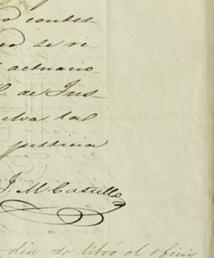 contes
se re
actuacio-
C. de Jus-
elva tal
justicia
J. M Castillo
dia se libró el oficio